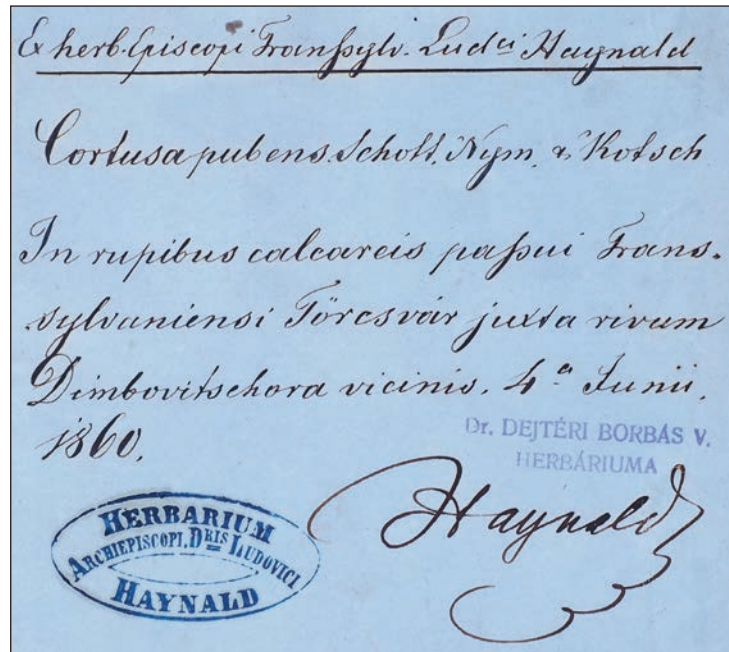 Ex herb. Episcopi Transsylv. Lud^ci Haynald
Cortusa pubens. Schott, Nym. & Kotsch
In rupibus calcareis passui Trans-
sylvaniensi Törcsvár juxta rivum
Dimbovitschora vicinis. 4^a Junii.
1860.
Dr. DEJTÉRI BORBÁS V.
HERBÁRIUMA
Haynald
HERBARIUM
ARCHIEPISCOPI, DRIS LUDOVICI
HAYNALD